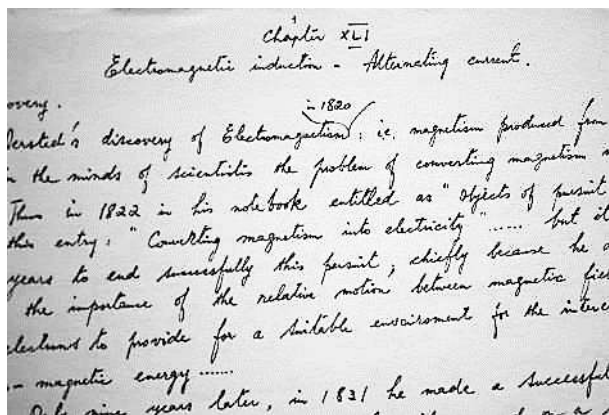 Chapter XLI
Electromagnetic induction - Alternating current.
overy.
in 1820
Oersted's discovery of Electromagnetism; i.e. magnetism produced from
in the minds of scientists the problem of converting magnetism
Thus in 1822 in his notebook entitled as "Objects of pursuit
this entry: "Converting magnetism into electricity" ...... but it
years to end successfully this pursuit, chiefly because he
the importance of the relative motion between magnetic fiel
electrons to provide for a suitable enviroment for the interc
- magnetic energy ......
Only nine years later, in 1831 he made a successful